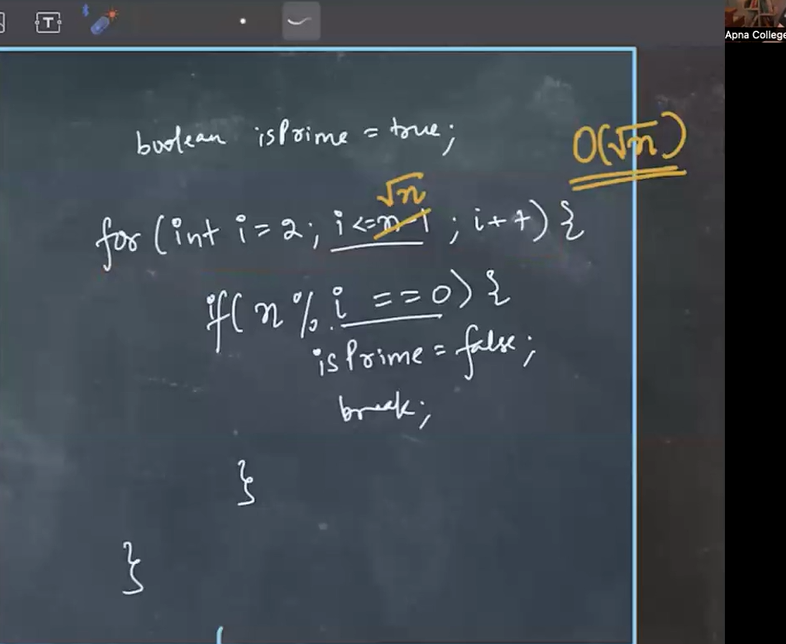 T
Apna College
boolean isPrime = true;
O(√n)
√n
for (int i = 2; i <= n-1 ; i++) {
if( n % i == 0) {
isPrime = false;
break;
}
}